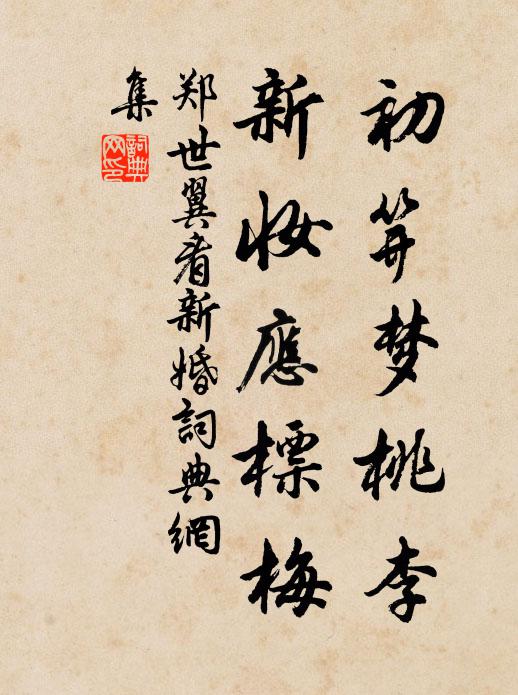 初笄梦桃李
新妆應標梅
郑世翼看新婚詞典網
集
詞典网印